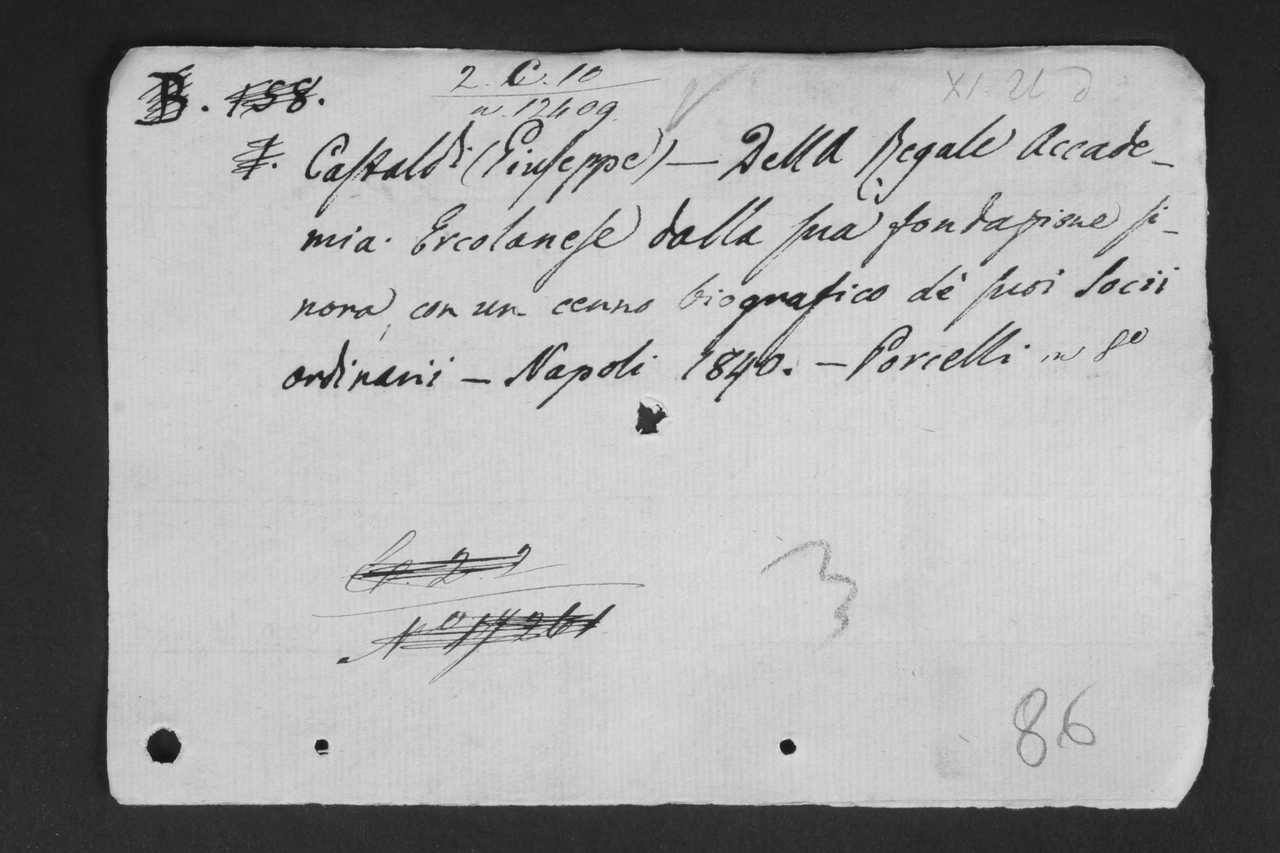 B. 138.
2. C. 10
n. 12409
Castaldi (Giuseppe) — Della Regale Accade-
mia Ercolanese dalla sua fondazione si-
nora, con un cenno biografico de' suoi Socii
ordinarii — Napoli 1840. — Porcelli in 8º
2. 2
Nº 17261
3
86